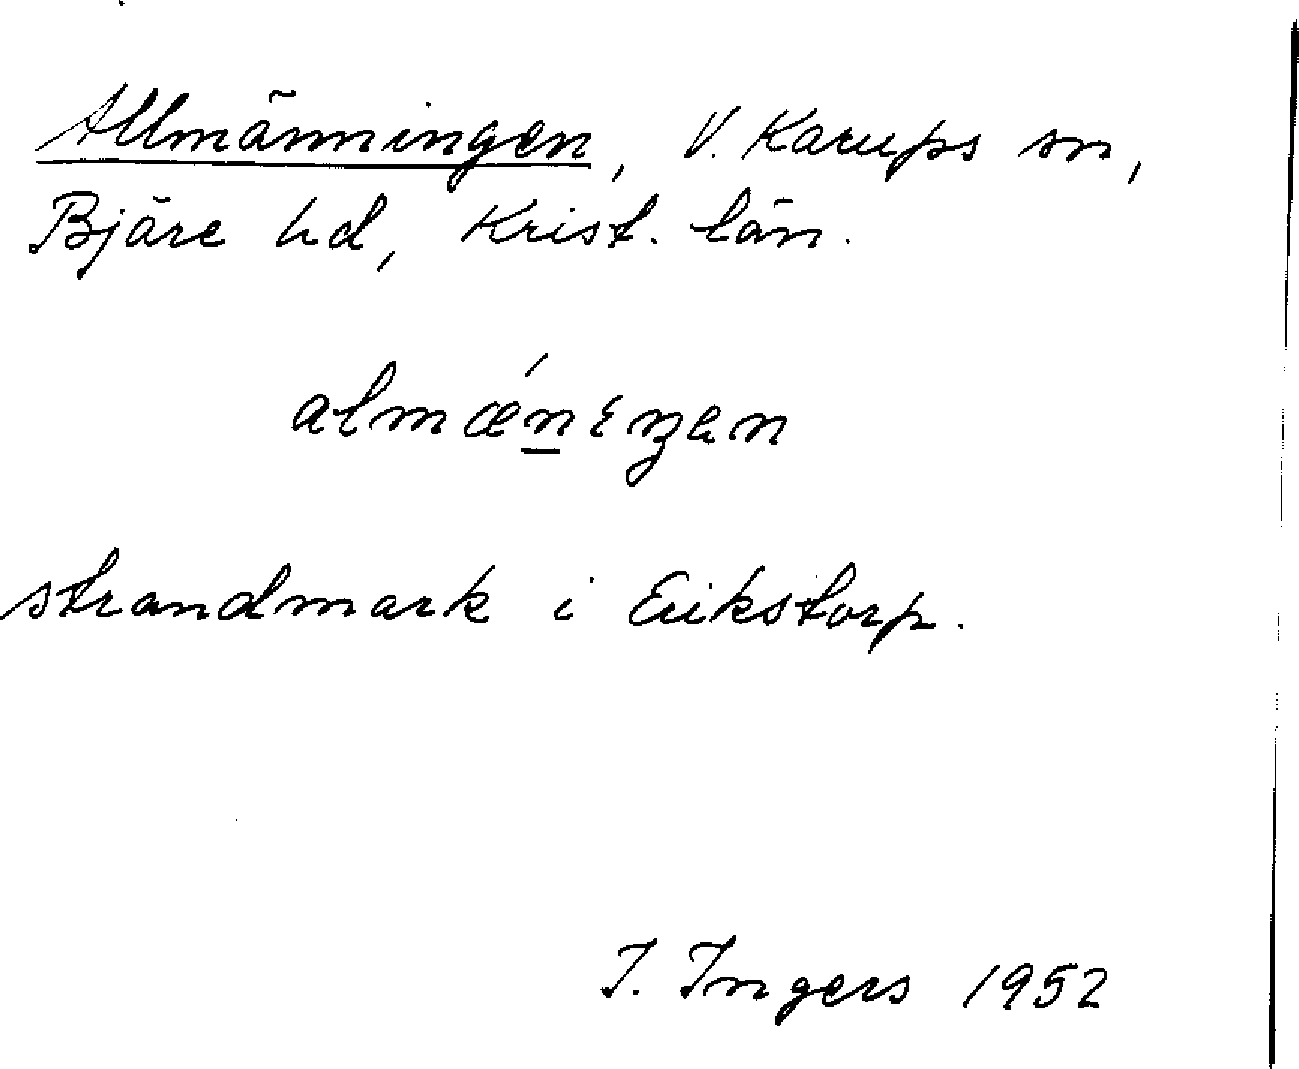 Allmänningen, V. Karups sn,
Bjäre hd, Krist. län.
almǽn̲ɛŋən
strandmark i Erikstorp.
I. Ingers 1952